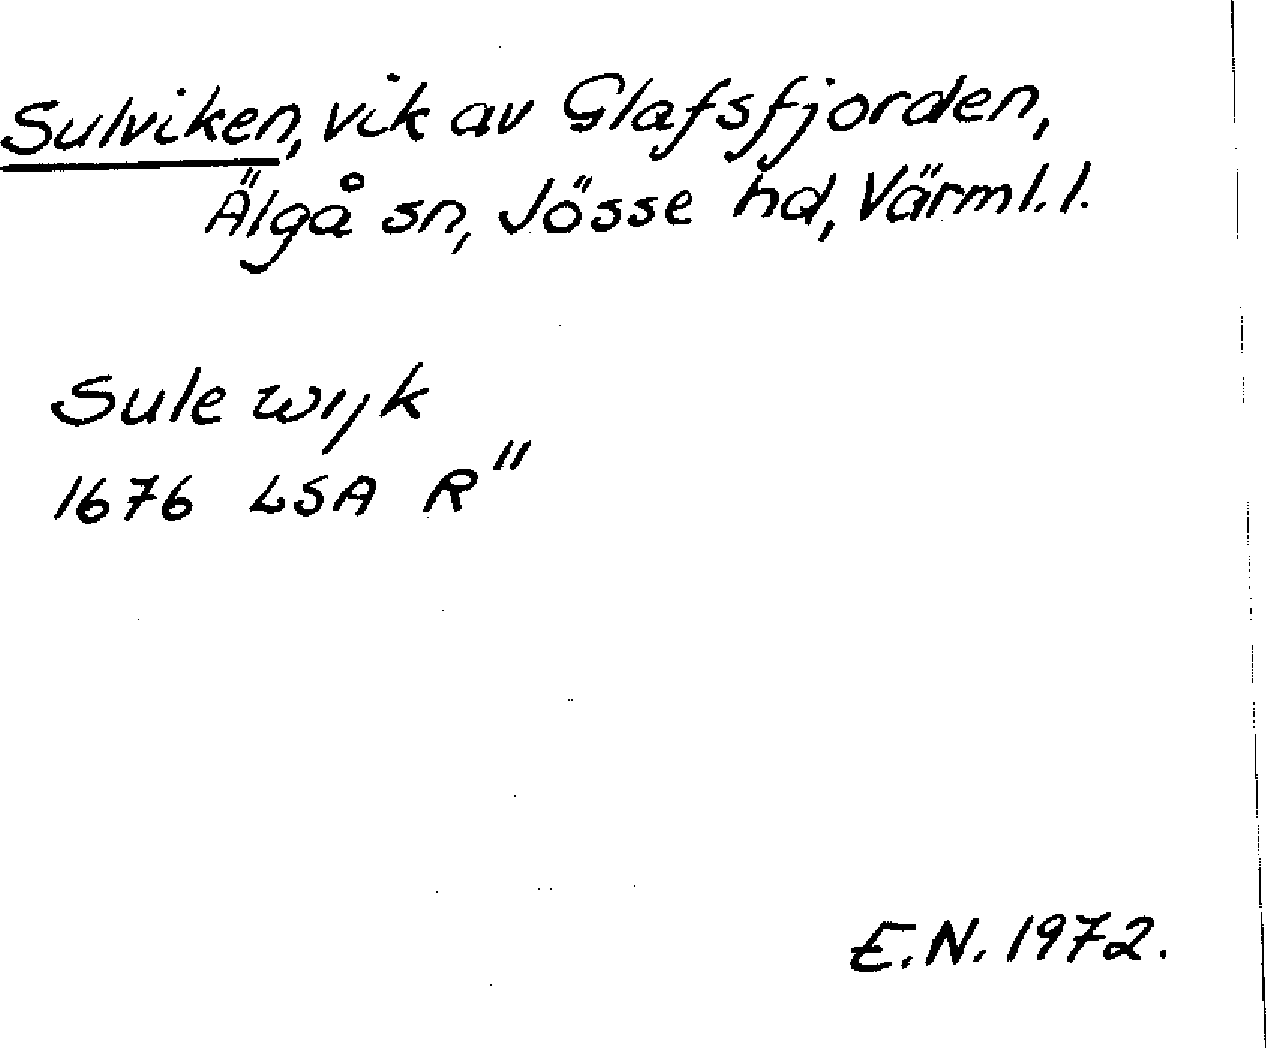 Sulviken, vik av Glafsfjorden,
Älgå sn, Jösse hd, Värml. l.
Sule wijk
1676 LSA R"
E.N. 1972.